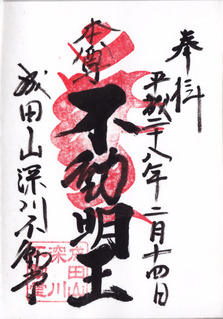 奉拝
平成二十八年二月十四日
本尊
不動明王
成田山深川不動堂
成田山
深川
不動堂